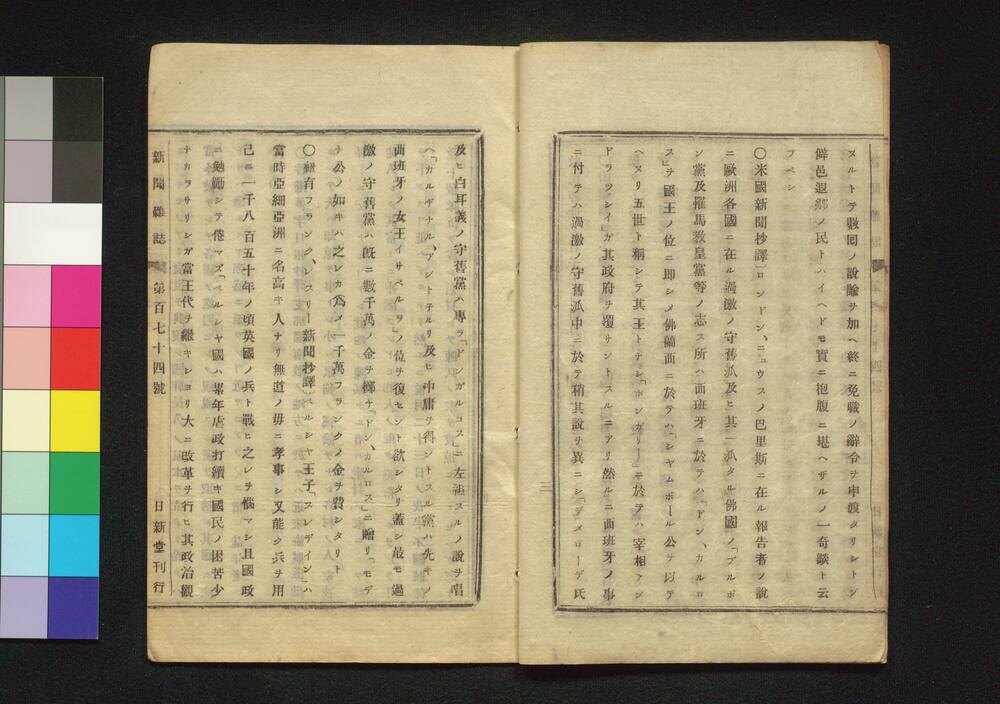 ヌルトテ數囘ノ説諭ヲ加ヘ終ニ免職ノ辭令ヲ申渡タリシトゾ
僻邑遐郷ノ民トハイヘドモ實ニ抱腹ニ堪ヘザルノ一奇談ト云
フベシ
〇米國新聞抄譯「ロンドン、ニュウスノ巴里斯ニ在ル報告者ノ説
ニ歐洲各國ニ在ル過激ノ守舊派及ヒ其一派タル佛國ノ「ブルボ
ン黨及羅馬教皇黨等ノ志ス所ハ西班牙ニ於テハ「ドン、カルロ
ス」ヲ國王ノ位ニ即シメ佛蘭西ニ於テハ「シヤムボール公ヲ以テ
ヘヌリ五世ト稱シテ其王トナシ「ホンガリー」ニ於テハ宰相「アン
ドラツシイ」ガ其政府ヲ覆サントスルニアリ然ルニ西班牙ノ事
ニ付テハ過激ノ守舊派中ニ於テ稍其説ヲ異ニシ「デメローデ氏
及ヒ白耳義ノ守舊黨ハ專ラ「ドンガルロコス」ニ左袒スルノ説ヲ唱
ヘ「カルギナル、アントテルリ及ヒ中庸ヲ得ントスル黨ハ先キノ
西班牙ノ女王イサベルラ」ノ位ヲ復セント欲シタリ蓋シ最モ過
激ノ守舊黨ハ既ニ數千萬ノ金ヲ擲ヤ「ドン、カルロス」ニ贈リ「モデ
ナ公ノ如キハ之レカ爲メ一千萬フランクノ金ヲ費シタリト
〇紐育フランク、レスリー新聞抄譯「ペルシヤ王子「スレデイン」ハ
當時亞細亞洲ニ名高キ人ナリ無道ノ毋ニ孝事シ又能ク兵ヲ用
己ニ一千八百五十年ノ頃英國ノ兵ト戰ヒ之レヲ惱マシ且國政
ニ勉勵シテ倦マズ「ペルシヤ國ハ累年虐政打續キ國民ノ困苦少
ナカラサリシガ當王代ヲ繼キシヨリ大ニ改革ヲ行ヒ其政治觀
新聞雜誌 第百七十四號 日新堂刊行